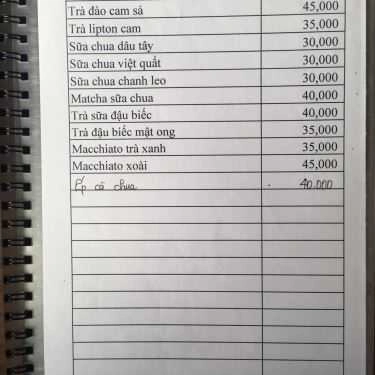 Trà đào cam sả 45,000
Trà lipton cam 35,000
Sữa chua dâu tây 30,000
Sữa chua việt quất 30,000
Sữa chua chanh leo 30,000
Matcha sữa chua 40,000
Trà sữa đậu biếc 40,000
Trà đậu biếc mật ong 35,000
Macchiato trà xanh 35,000
Macchiato xoài 45,000
Ép cà chua 40.000